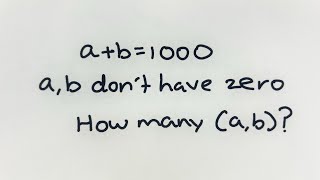 a+b=1000
a,b don't have zero
How many (a,b)?